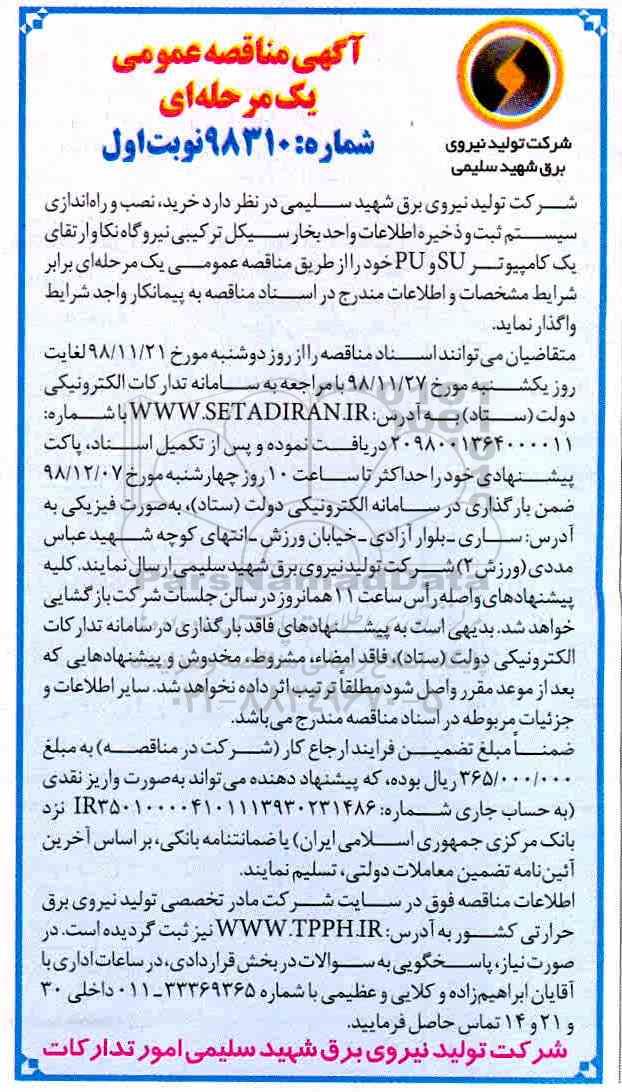 آگهی مناقصه عمومی
یک مرحله‌ای
شماره: ۹۸۳۱۰ نوبت اول
شرکت تولید نیروی
برق شهید سلیمی
شرکت تولید نیروی برق شهید سلیمی در نظر دارد خرید، نصب و راه‌اندازی
سیستم ثبت و ذخیره اطلاعات واحد بخار سیکل ترکیبی نیروگاه نکا و ارتقای
یک کامپیوتر SU و PU خود را از طریق مناقصه عمومی یک مرحله‌ای برابر
شرایط مشخصات و اطلاعات مندرج در اسناد مناقصه به پیمانکار واجد شرایط
واگذار نماید.
متقاضیان می‌توانند اسناد مناقصه را از روز دوشنبه مورخ ۹۸/۱۱/۲۱ لغایت
روز یکشنبه مورخ ۹۸/۱۱/۲۷ با مراجعه به سامانه تدارکات الکترونیکی
دولت (ستاد) به آدرس: WWW.SETADIRAN.IR با شماره:
۲۰۹۸۰۰۱۳۶۴۰۰۰۰۱۱ دریافت نموده و پس از تکمیل اسناد، پاکت
پیشنهادی خود را حداکثر تا ساعت ۱۰ روز چهارشنبه مورخ ۹۸/۱۲/۰۷
ضمن بارگذاری در سامانه الکترونیکی دولت (ستاد)، به‌صورت فیزیکی به
آدرس: ساری ـ بلوار آزادی ـ خیابان ورزش ـ انتهای کوچه شهید عباس
مددی (ورزش ۲) شرکت تولید نیروی برق شهید سلیمی ارسال نمایند. کلیه
پیشنهادهای واصله رأس ساعت ۱۱ همانروز در سالن جلسات شرکت بازگشایی
خواهد شد. بدیهی است به پیشنهادهای فاقد بارگذاری در سامانه تدارکات
الکترونیکی دولت (ستاد)، فاقد امضاء، مشروط، مخدوش و پیشنهادهایی که
بعد از موعد مقرر واصل شود مطلقاً ترتیب اثر داده نخواهد شد. سایر اطلاعات و
جزئیات مربوطه در اسناد مناقصه مندرج می‌باشد.
ضمناً مبلغ تضمین فرایند ارجاع کار (شرکت در مناقصه) به مبلغ
۳۶۵/۰۰۰/۰۰۰ ریال بوده، که پیشنهاد دهنده می‌تواند به‌صورت واریز نقدی
(به حساب جاری شماره: IR۳۵۰۱۰۰۰۰۴۱۰۱۱۱۳۹۳۰۲۳۱۴۸۶ نزد
بانک مرکزی جمهوری اسلامی ایران) یا ضمانتنامه بانکی، بر اساس آخرین
آئین‌نامه تضمین معاملات دولتی، تسلیم نمایند.
اطلاعات مناقصه فوق در سایت شرکت مادر تخصصی تولید نیروی برق
حرارتی کشور به آدرس: WWW.TPPH.IR نیز ثبت گردیده است. در
صورت نیاز، پاسخگویی به سوالات در بخش قراردادی، در ساعات اداری با
آقایان ابراهیم‌زاده و کلایی و عظیمی با شماره ۳۳۳۶۹۳۶۵ ـ ۰۱۱ داخلی ۳۰
و ۲۱ و ۱۴ تماس حاصل فرمایید.
شرکت تولید نیروی برق شهید سلیمی امور تدارکات
ParsNamadData
۰۲۱-۸۸۳۴۹۶۷۰-۵